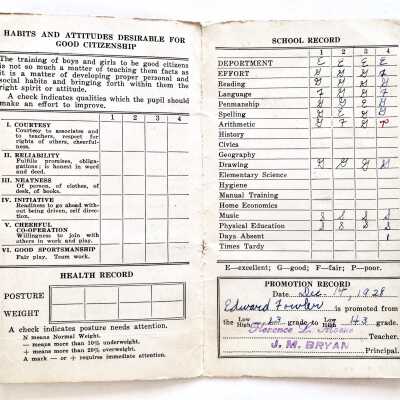 HABITS AND ATTITUDES DESIRABLE FOR
GOOD CITIZENSHIP
The training of boys and girls to be good citizens
is not so much a matter of teaching them facts as
it is a matter of developing proper personal and
social habits and bringing forth within them the
right spirit or attitude.
A check indicates qualities which the pupil should
make an effort to improve.
1 2 3 4
I. COURTESY
Courtesy to associates and
to teachers, respect for
rights of others, cheerful-
ness.
II. RELIABILITY
Fulfills promises, obliga-
gations; is honest in word
and deed.
III. NEATNESS
Of person, of clothes, of
desk, of books.
IV. INITIATIVE
Readiness to go ahead with-
out being driven, self direc-
tion.
V. CHEERFUL
CO-OPERATION
Willingness to join with
others in work and play.
VI. GOOD SPORTSMANSHIP
Fair play. Team work.
HEALTH RECORD
POSTURE
WEIGHT
A check indicates posture needs attention.
N means Normal Weight.
— means more than 10% underweight.
+ means more than 20% overweight.
A mark — or + requires immediate attention.
SCHOOL RECORD
1 2 3 4
DEPORTMENT E E E E
EFFORT G G G
Reading
Language
Penmanship G G E G
Spelling
Arithmetic G F G
History
Civics
Geography
Drawing G G G G
Elementary Science
Hygiene
Manual Training
Home Economics
Music S S S S
Physical Education S S S S
Days Absent 1
Times Tardy
E—excellent; G—good; F—fair; P—poor.
PROMOTION RECORD
Date Dec 14, 1928
Edward Fowler is promoted from
the Low High L3 grade to Low High H3 grade.
Florence L. Teacher.
J. M. BRYAN Principal.